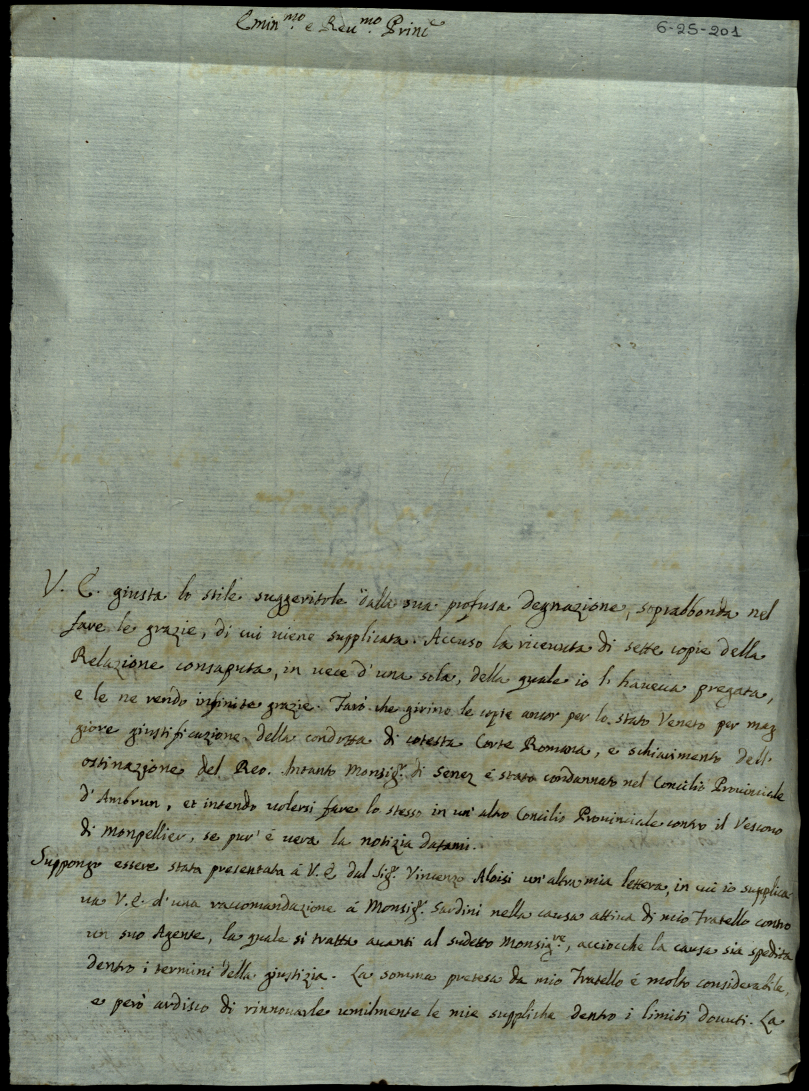 Emin.mo e Reu.mo Princ
6-25-201
V. E. giusta lo stile suggeritole dalla sua profusa degnazione, soprabbonda nel
fare le grazie, di cui viene supplicata. Accuso la riceuuta di sette copie della
Relazione consaputa, in uece d'una sola, della quale io l'haueua pregata,
e le ne rendo infinite grazie. Farò che girino le copie ancor per lo stato Veneto per mag
giore giustificazione della condotta di cotesta Corte Romana, e schiarimento dell'
ostinazione del Reo. Intanto Monsig.r di Senez é stato condannato nel Concilio Prouinciale
d'Ambrun, et intendo uolersi fare lo stesso in un'altro Concilio Prouinciale contro il Vescouo
di Monpellier, se pur' é uera la notizia datami.
Suppongo essere stata presentata á V. E. dal Sig.r Vincenzo Aloisi un'altra mia lettera, in cui io supplica
ua V. E. d'una raccomandazione á Monsig.r Sardini nella causa attiua di mio Fratello contro
un suo Agente, la quale si tratta auanti al sudetto Monsig.re, acciocche la causa sia spedita
dentro i termini della giustizia. La somma pretesa da mio Fratello é molto considerabile,
e però ardisco di rinnouarle umilmente le mie suppliche dentro i limiti douuti. La